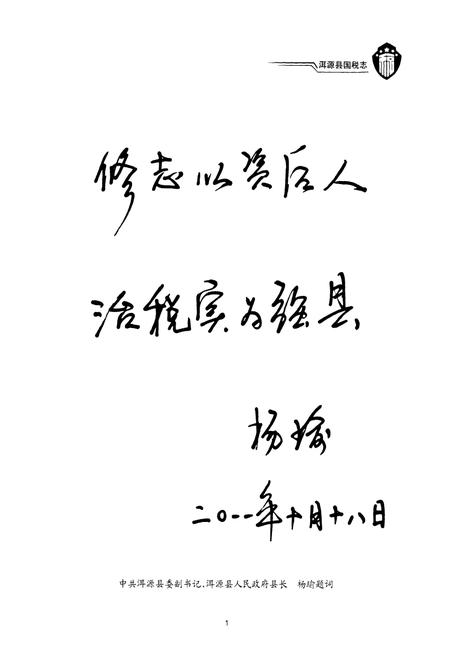 洱源县国税志
修志以资后人
治税实为强县
杨瑜
二〇一一年十月十八日
中共洱源县委副书记、洱源县人民政府县长 杨瑜题词
1